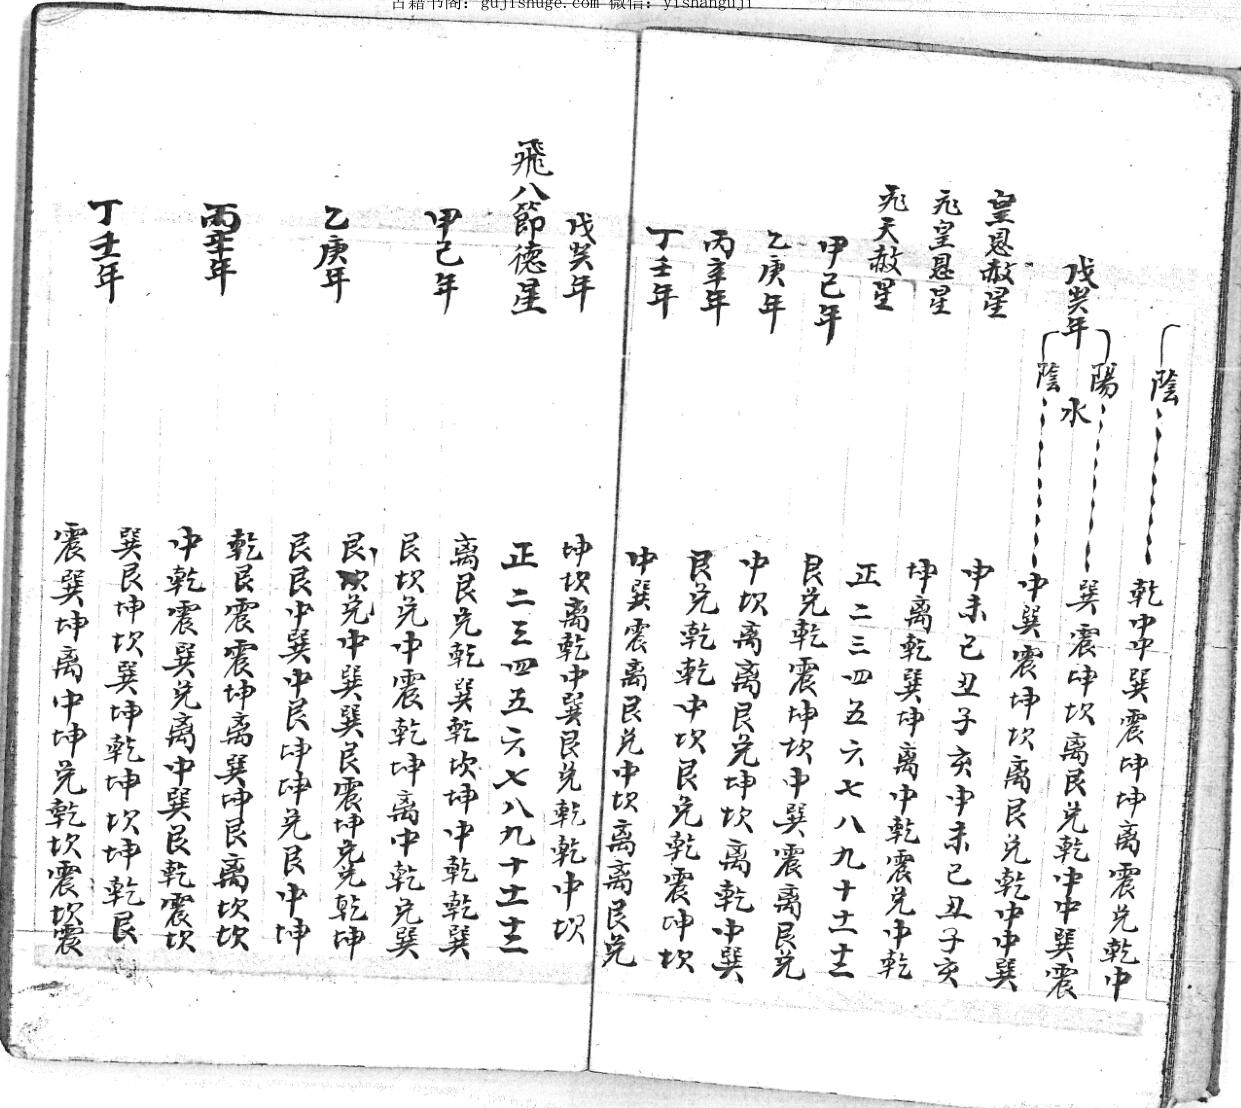 古籍书阁：gujishuge.com 微信：yishanguji
陰 乾中中巽震坤坤离震兑乾中
陽 巽震坤坎离艮兑乾中中巽震
戊癸年 水
陰 中巽震坤坎离艮兑乾中中巽
皇恩赦星 申未巳丑子亥申未巳丑子亥
飛皇恩星 坤离乾巽坤离中乾震兑中乾
飛天赦星 正二三四五六七八九十十一十二
甲己年 艮兑乾震坤坎中巽震离艮兑
乙庚年 中坎离离艮兑坤坎离乾中巽
丙辛年 艮兑乾乾中坎艮兑乾震坤坎
丁壬年 中巽震离艮兑中坎离离艮兑
戊癸年 坤坎离乾中巽艮兑乾乾中坎
飛八節德星 正二三四五六七八九十十一十二
甲己年 离艮兑乾巽乾坎坤中乾乾巽
艮坎兑中震乾坤离中乾兑巽
乙庚年 艮坎兑中巽巽艮震坤兑兑乾坤
艮艮中巽中艮坤坤兑艮中坤
丙辛年 乾艮震震坤离巽坤艮离坎坎
中乾震巽兑离中巽艮乾震坎
丁壬年 巽艮坤坎巽坤乾坤坎坤乾艮
震巽坤离中坤兑乾坎震坎震